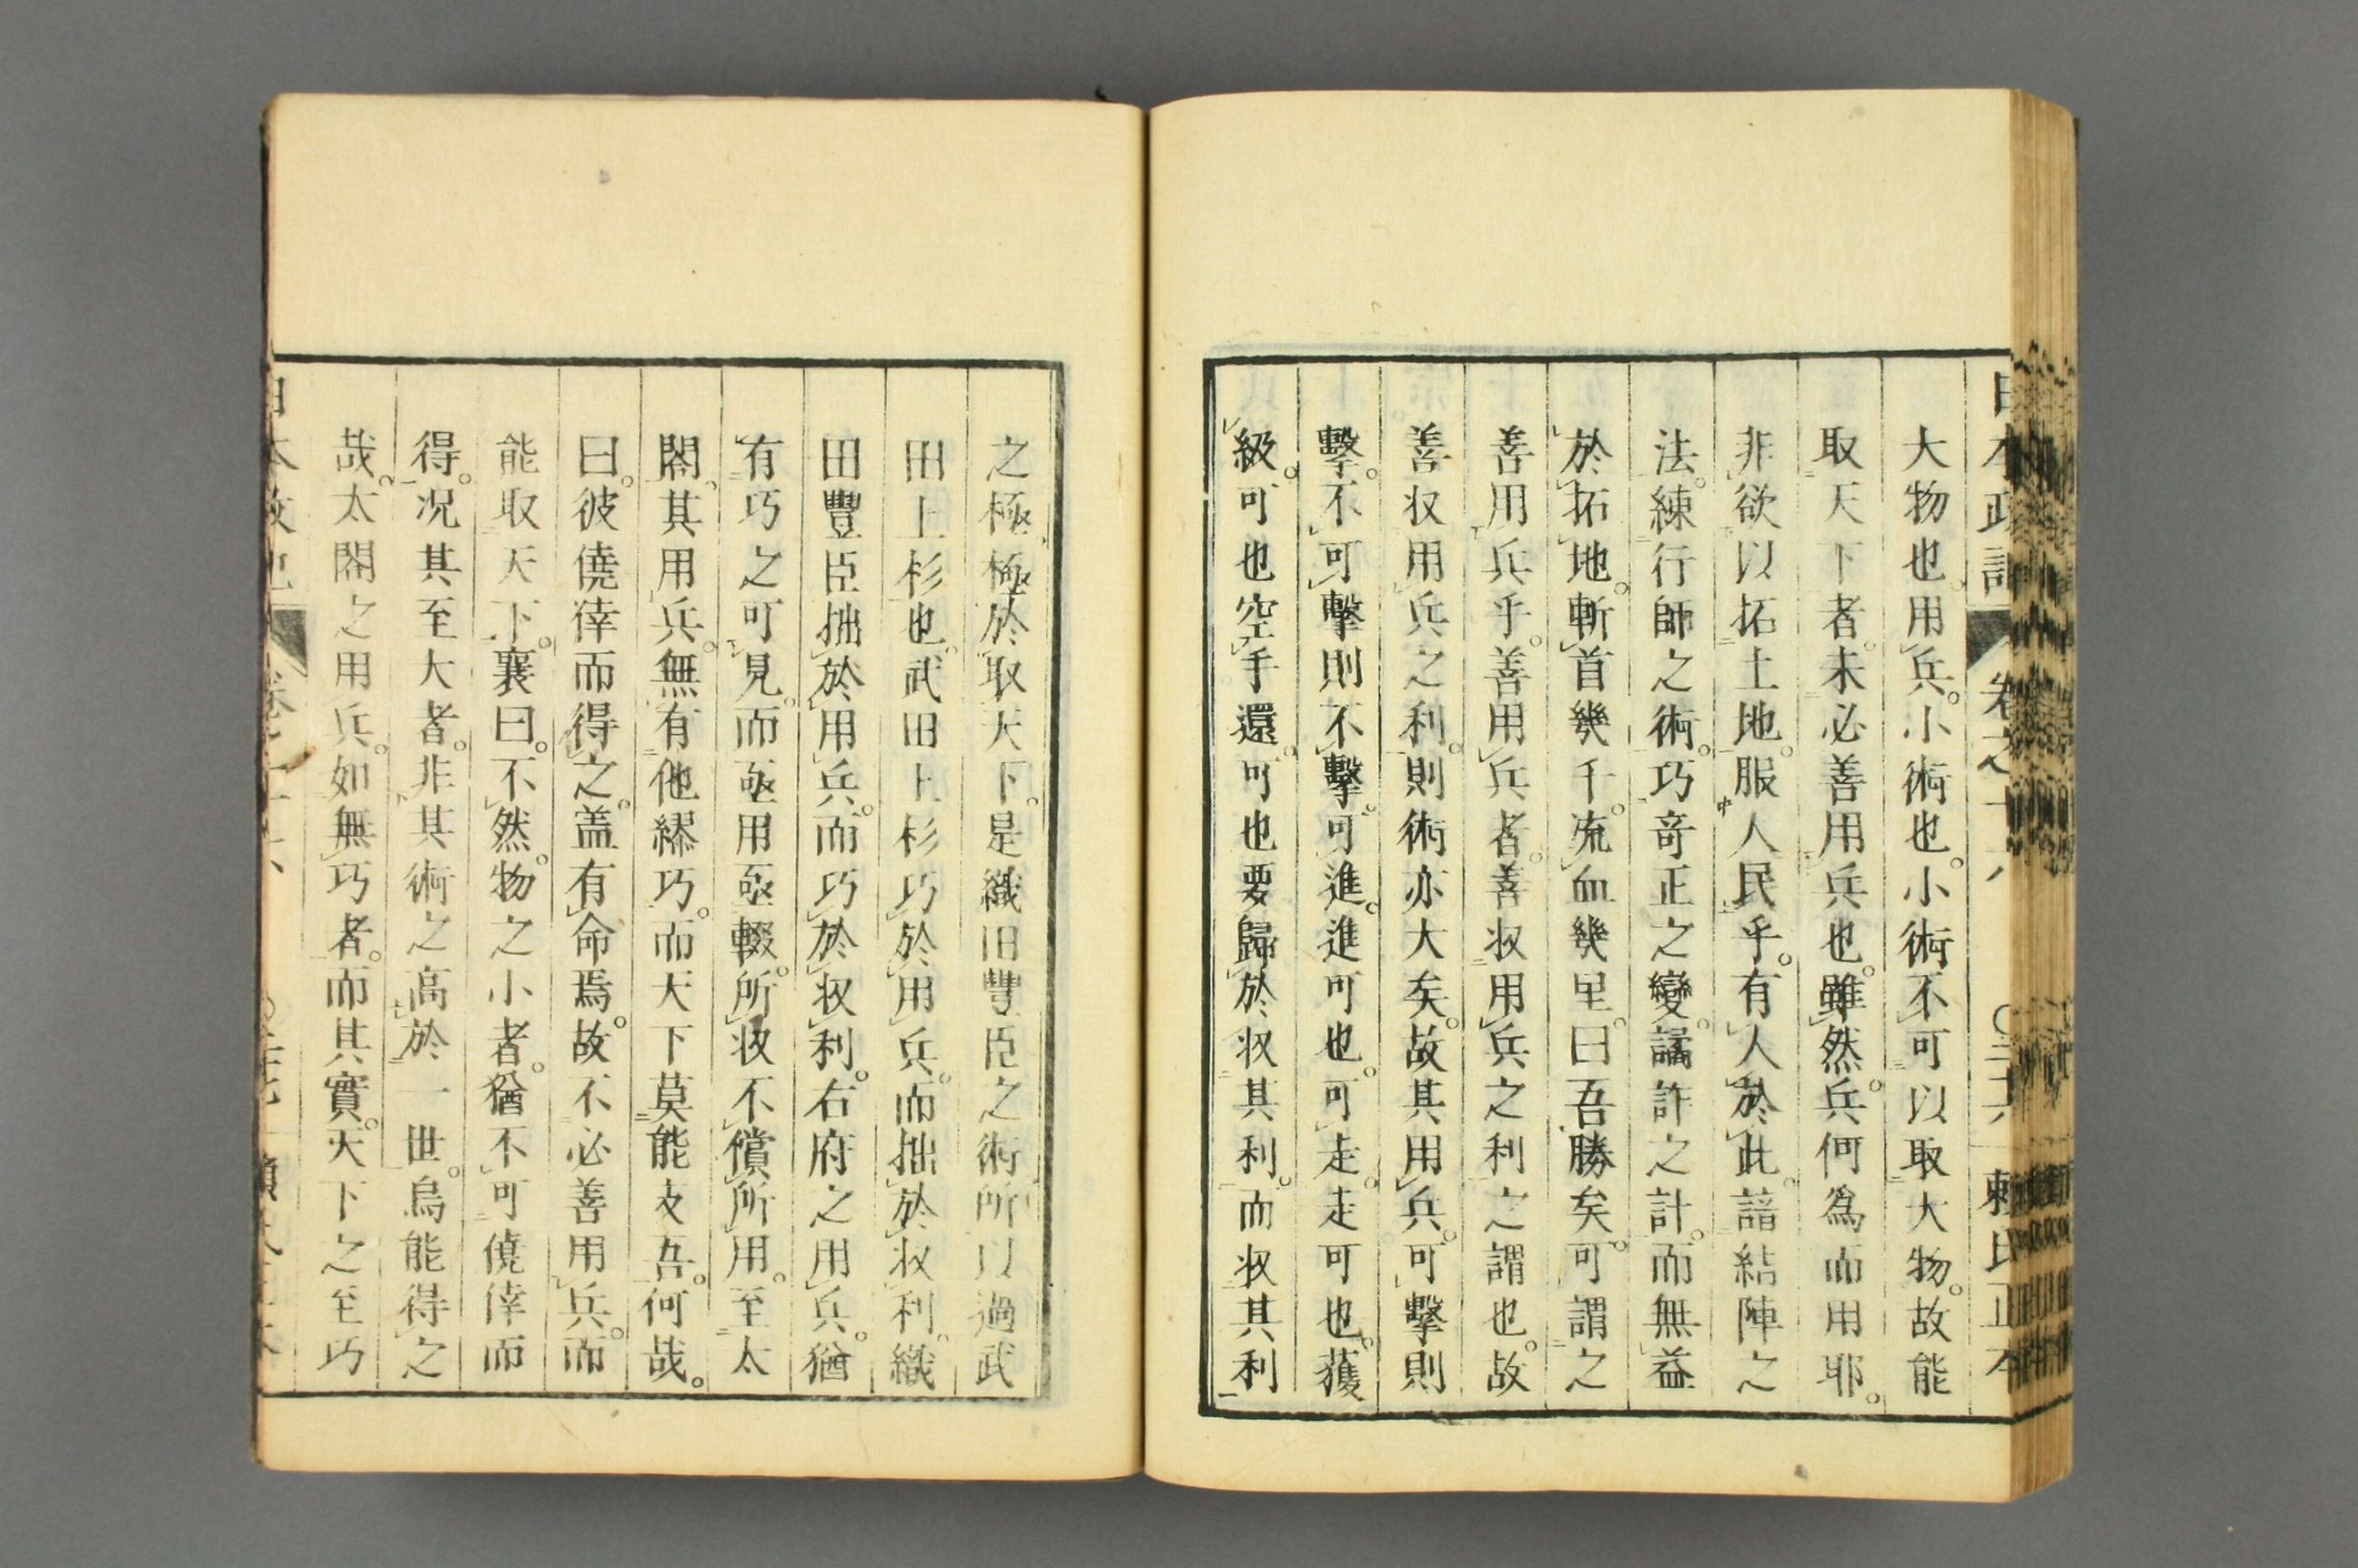 大物也。用兵。小術也。小術不可以取大物。故能
取天下者。未必善用兵也。雖然。兵何為而用耶。
非欲以拓土地。服人民乎。有人於此。諳結陣之
法。練行師之術。巧奇正之變。譎詐之計。而無益
於拓地。斬首幾千。流血幾里。曰吾勝矣。可謂之
善用兵乎。善用兵者。善収用兵之利之謂也。故
善収用兵之利。則術亦大矣。故其用兵。可擊則
擊。不可擊則不擊。可進。進可也。可走。走可也。獲
級。可也空手還。可也要歸於収其利。而収其利
之極。極於取天下。是織田豐臣之術所以過武
田上杉也。武田上杉巧於用兵。而拙於収利。織
田豐臣拙於用兵。而巧於収利。右府之用兵。猶
有巧之可見。而亟用亟輟。所収不償所用。至太
閤。其用兵。無有他繆巧。而天下莫能支吾。何哉。
曰。彼僥倖而得之。盖有命焉。故不必善用兵。而
能取天下。襄曰。不然。物之小者。猶不可僥倖而
得。况其至大者。非其術之高於一世。烏能得之
哉。太閤之用兵。如無巧者。而其實。天下之至巧